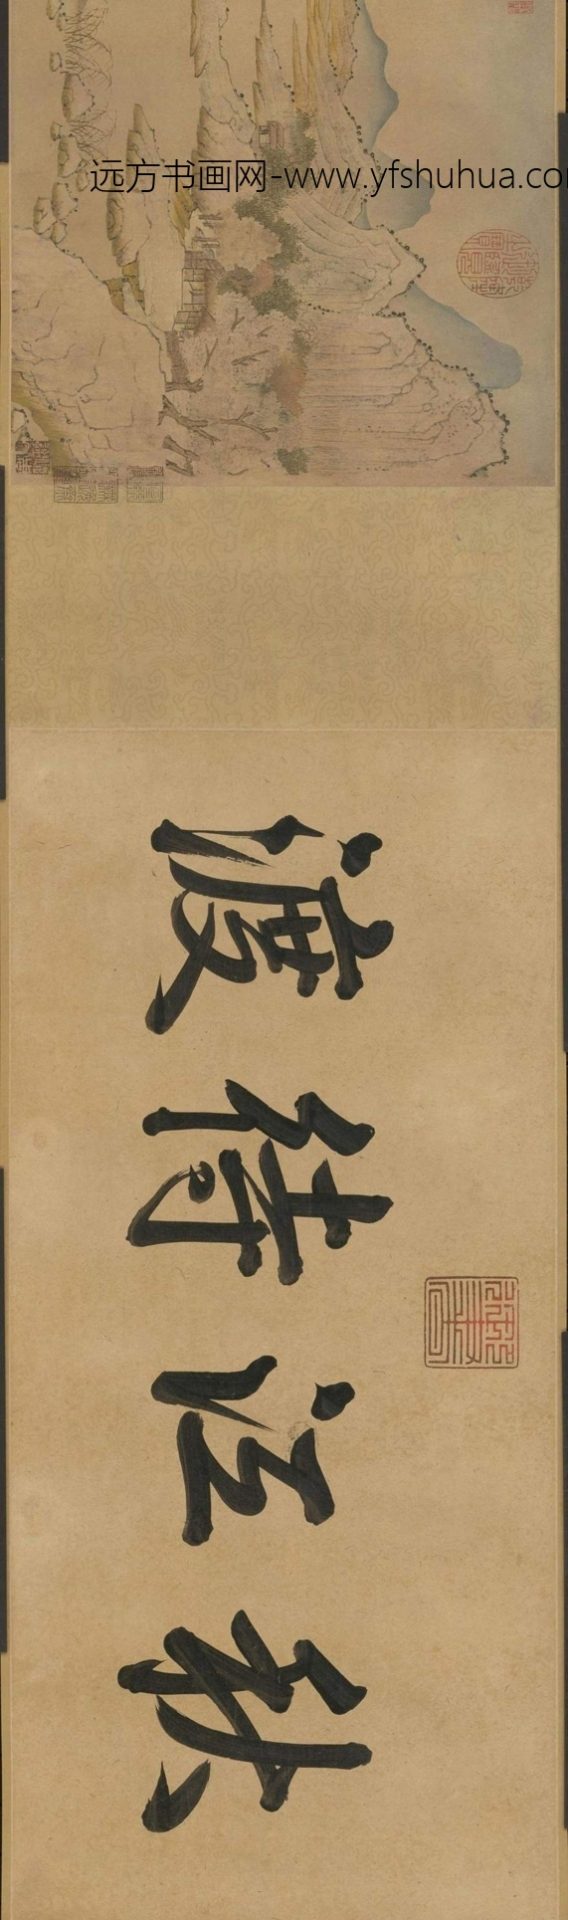 远方书画网-www.yfshuhua.com
秋江待渡